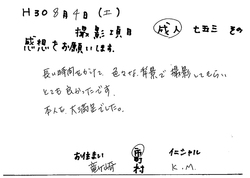 H30 8月4日(土)
撮影項目 成人 七五三 その
感想をお願いします。
長い時間をかけて、色々な背景で撮影してもらい
とても良かったです。
本人も大満足でした。
お住まい 市町村 イニシャル
竜ヶ崎 K.M.